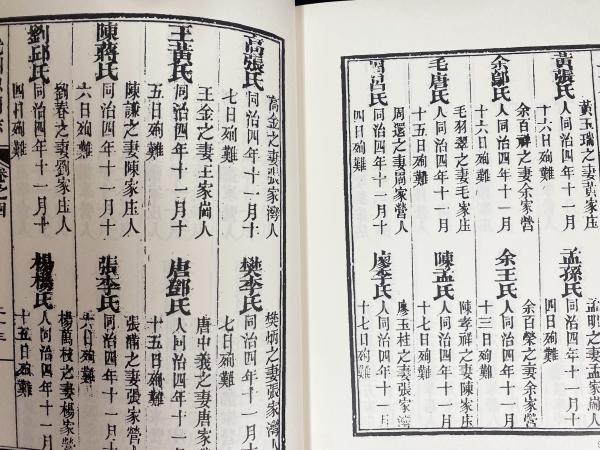 黃張氏
黃玉瑞之妻黃家庄
人同治四年十一月
十六日殉難
余鄭氏
余百祥之妻余家營
人同治四年十一月
十六日殉難
毛唐氏
毛羽翠之妻毛家庄
人同治四年十一月
十五日殉難
周呂氏
周還之妻周家營人
同治四年十一月十
四日殉難
孟孫氏
孟明之妻孟家崗人
同治四年十一月十
四日殉難
余王氏
余百榮之妻余家營
人同治四年十一月
十三日殉難
陳孟氏
陳孝祥之妻陳家庄
人同治四年十一月
十七日殉難
廖李氏
廖玉柱之妻張家灣
人同治四年十一月
十七日殉難
高張氏
高金之妻張家灣人
同治四年十一月十
七日殉難
王黃氏
王金之妻王家崗人
同治四年十一月十
五日殉難
陳蔣氏
陳謙之妻陳家庄人
同治四年十一月十
六日殉難
劉邱氏
劉春之妻劉家庄人
同治四年十一月十
四日殉難
樊李氏
樊炳之妻張家灣人
同治四年十一月十
七日殉難
唐鄧氏
唐中義之妻唐家營
人同治四年十一月
十五日殉難
張李氏
張 之妻張家營人
同治四年十一月十
六日殉難
楊楊氏
楊萬枝之妻楊家營
人同治四年十一月
十五日殉難
卷之四